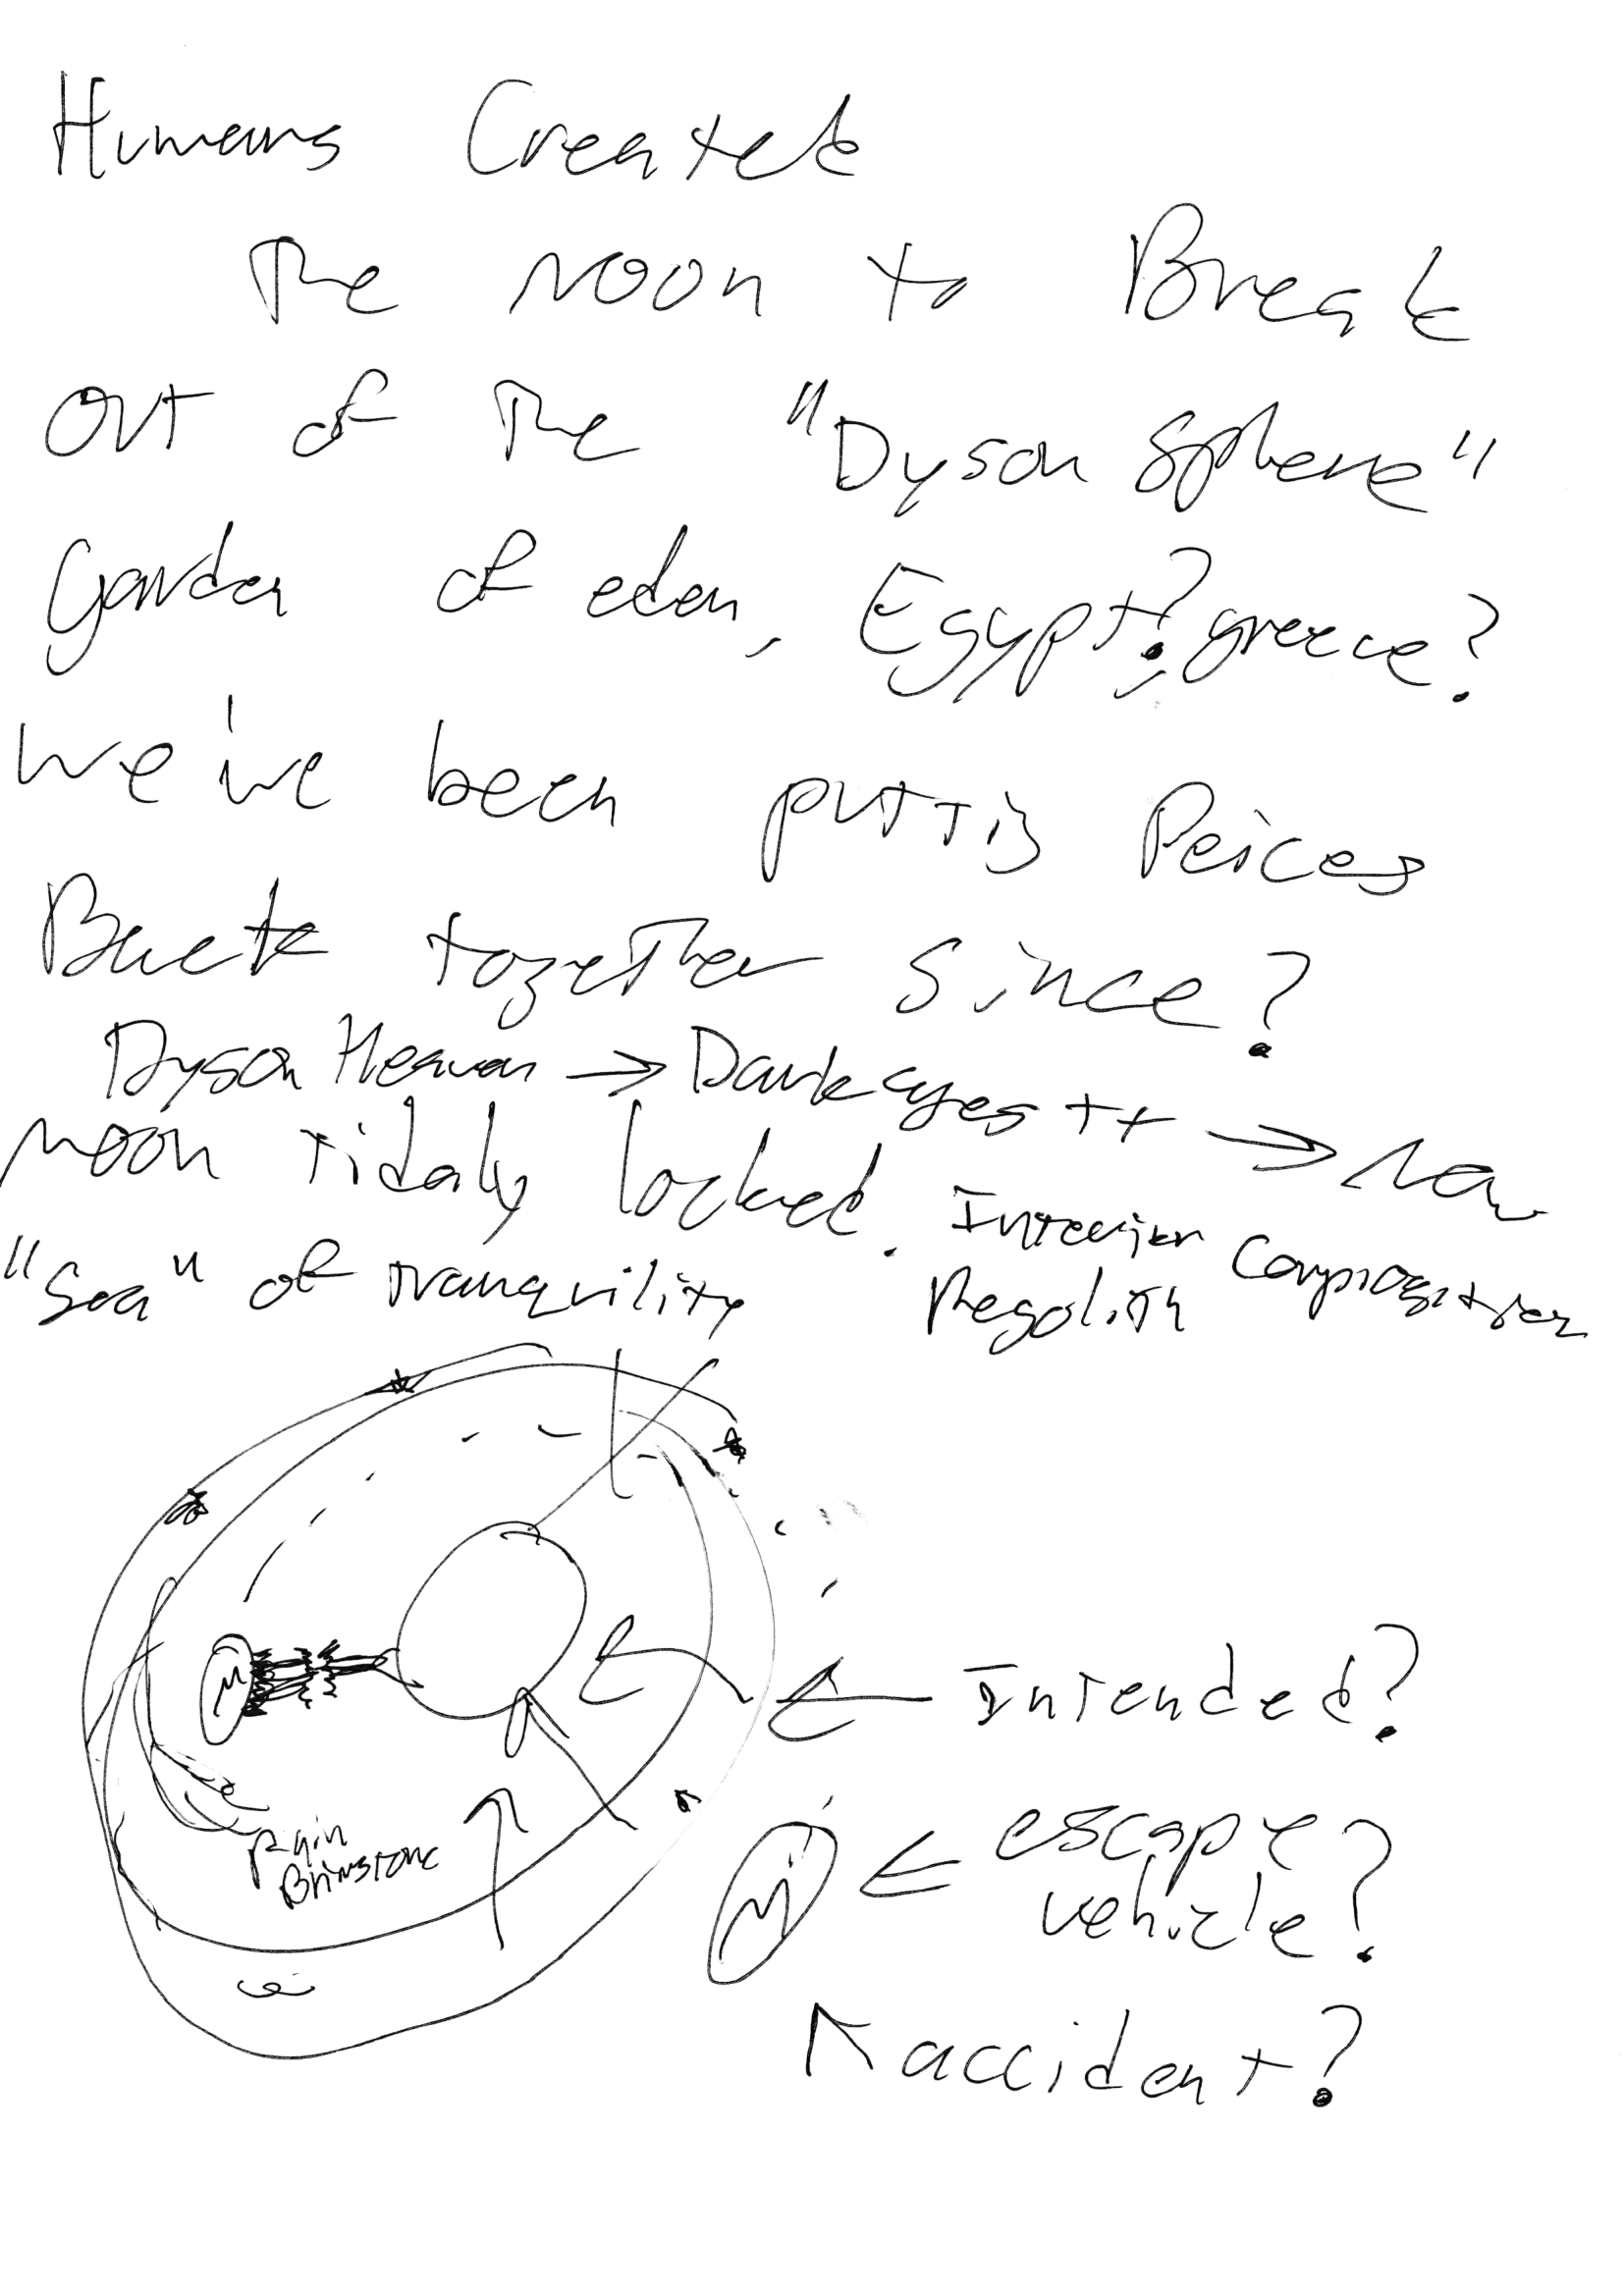 Humans Created
The Moon to Break
out of the "Dyson Sphere"
Garden of eden, Egypt? greece?
we've been putting Peices
Back together since?
Dyson Heaven → Dark ages ++ → Now
Moon tidaly locked. Interior Composition
"Sea" of tranquility Regolith
M
Rain
Brimstone
← Intended?
M ← escape
vehicle?
accident?